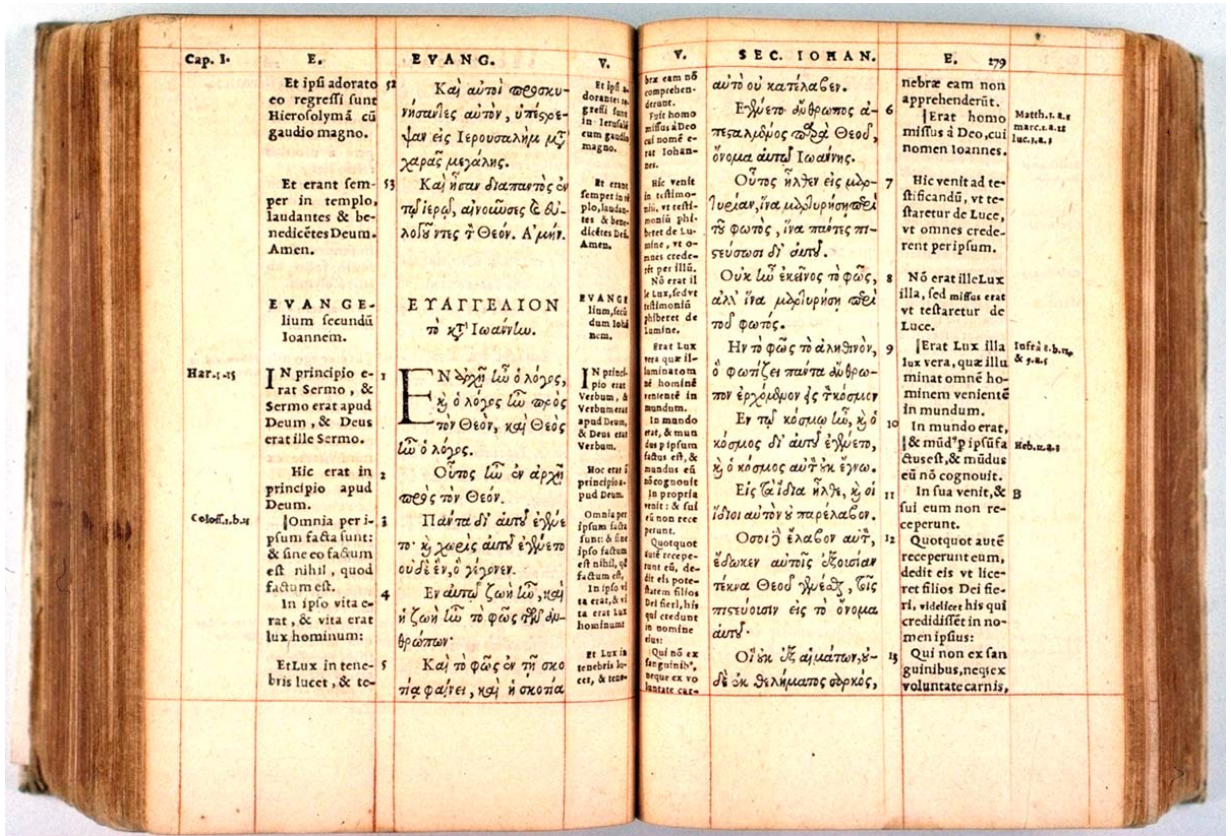 Cap. I.
E.
EVANG.
V.
Har.1.15
Coloss.1.b.15
Et ipsi adorato
eo regressi sunt
Hierosolymã cũ
gaudio magno.
Et erant sem-
per in templo,
laudantes & be-
nedicẽtes Deum.
Amen.
EVANGE-
lium secundũ
Ioannem.
IN principio e-
rat Sermo, &
Sermo erat apud
Deum, & Deus
erat ille Sermo.
Hic erat in
principio apud
Deum.
Omnia per i-
psum facta sunt:
& sine eo factum
est nihil, quod
factum est.
In ipso vita e-
rat, & vita erat
lux hominum:
Et Lux in tene-
bris lucet, & te-
52
53
1
2
3
4
5
Καὶ αὐτοὶ προσκυ-
νήσαντες αὐτὸν, ὑπέστρε-
ψαν εἰς Ιερουσαλὴμ μετὰ
χαρᾶς μεγάλης.
Καὶ ἦσαν διαπαντὸς ἐν
τῷ ἱερῷ, αἰνοῦντες καὶ εὐ-
λογοῦντες τὸν Θεόν. Αμήν.
ΕΥΑΓΓΕΛΙΟΝ
τὸ κατ' Ιωάννην.
ΕΝ ἀρχῇ ἦν ὁ λόγος,
καὶ ὁ λόγος ἦν πρὸς
τὸν Θεόν, καὶ Θεὸς
ἦν ὁ λόγος.
Οὗτος ἦν ἐν ἀρχῇ
πρὸς τὸν Θεόν.
Πάντα δι' αὐτοῦ ἐγένε
το· καὶ χωρὶς αὐτοῦ ἐγένετο
οὐδὲ ἓν, ὃ γέγονεν.
Εν αὐτῷ ζωὴ ἦν, καὶ
ἡ ζωὴ ἦν τὸ φῶς τῶν ἀν-
θρώπων·
Καὶ τὸ φῶς ἐν τῇ σκο
τίᾳ φαίνει, καὶ ἡ σκοτία
Et ipsi a-
dorantes re-
gressi sunt
in Ierusalẽ
cum gaudio
magno.
Et erant
semper in tẽ
plo, laudan-
tes & bene-
dicẽtes Deũ.
Amen.
EVANGE
lium, secũ
dum Iohã
nem.
IN princi-
pio erat
Verbum, &
Verbum erat
apud Deum,
& Deus erat
Verbum.
Hoc erat ĩ
principio a-
pud Deum.
Omnia per
ipsum facta
sunt: & sine
ipso factum
est nihil, qđ
factum est,
In ipso vi
ta erat, & vi
ta erat Lux
hominum:
Et Lux in
tenebris lu-
cet, & tene-
V.
SEC. IOHAN.
E.
179
bræ eam nõ
comprehen-
derunt.
Fuit homo
missus à Deo
cui nomẽ e-
rat Iohan-
nes.
Hic venit
in testimo-
niũ, vt testi-
moniũ phi-
beret de Lu-
mine, vt o-
mnes crede-
rẽt per illũ.
Nõ erat il
le Lux, sed vt
testimoniũ
phiberet de
Lumine.
Erat Lux
vera quæ il-
luminat om
nẽ hominẽ
venientẽ in
mundum.
In mundo
erat, & mun
dus p ipsum
factus est, &
mundus eũ
nõ cognouit
In propria
venit: & sui
eũ non rece
perunt.
Quotquot
autẽ recepe-
runt eũ, de-
dit eis pote-
statem filios
Dei fieri, his
qui credunt
in nomine
eius:
Qui nõ ex
sanguinibᵒ,
neque ex vo
luntate car-
αὐτὸ οὐ κατέλαβεν.
Εγένετο ἄνθρωπος ἀ-
πεσταλμένος παρὰ Θεοῦ,
ὄνομα αὐτῷ Ιωάννης.
Οὗτος ἦλθεν εἰς μαρ-
τυρίαν, ἵνα μαρτυρήσῃ περὶ
τοῦ φωτὸς, ἵνα πάντες πι-
στεύσωσι δι' αὐτοῦ.
Οὐκ ἦν ἐκεῖνος τὸ φῶς,
ἀλλ' ἵνα μαρτυρήσῃ περὶ
τοῦ φωτός.
Ην τὸ φῶς τὸ ἀληθινὸν,
ὃ φωτίζει πάντα ἄνθρω-
πον ἐρχόμενον εἰς τὸν κόσμον
Εν τῷ κόσμῳ ἦν, καὶ ὁ
κόσμος δι' αὐτοῦ ἐγένετο,
καὶ ὁ κόσμος αὐτὸν οὐκ ἔγνω.
Εἰς τὰ ἴδια ἦλθε, καὶ οἱ
ἴδιοι αὐτὸν οὐ παρέλαβον.
Οσοι δὲ ἔλαβον αὐτὸν,
ἔδωκεν αὐτοῖς ἐξουσίαν
τέκνα Θεοῦ γενέσθαι, τοῖς
πιστεύουσιν εἰς τὸ ὄνομα
αὐτοῦ·
Οἳ οὐκ ἐξ αἱμάτων, οὐ-
δὲ ἐκ θελήματος σαρκὸς,
6
7
8
9
10
11
12
13
nebræ eam non
apprehenderũt.
Erat homo
missus à Deo, cui
nomen Ioannes.
Hic venit ad te-
stificandũ, vt te-
staretur de Luce,
vt omnes crede-
rent per ipsum.
Nõ erat ille Lux
illa, sed missus erat
vt testaretur de
Luce.
Erat Lux illa
lux vera, quæ illu
minat omnẽ ho-
minem venientẽ
in mundum.
In mundo erat,
& mũdᵒ p ipsũ fa
ctus est, & mũdus
eũ nõ cognouit.
In sua venit, &
sui eum non re-
ceperunt.
Quotquot autẽ
receperunt eum,
dedit eis vt lice-
ret filios Dei fie-
ri, videlicet his qui
credidissẽt in no-
men ipsius:
Qui non ex san
guinibus, neqȝ ex
voluntate carnis,
Matth.3.a.1
marc.1.a.12
luc.3.a.3
Infrà 8.b.12
& 9.a.5
Heb.11.a.3
B